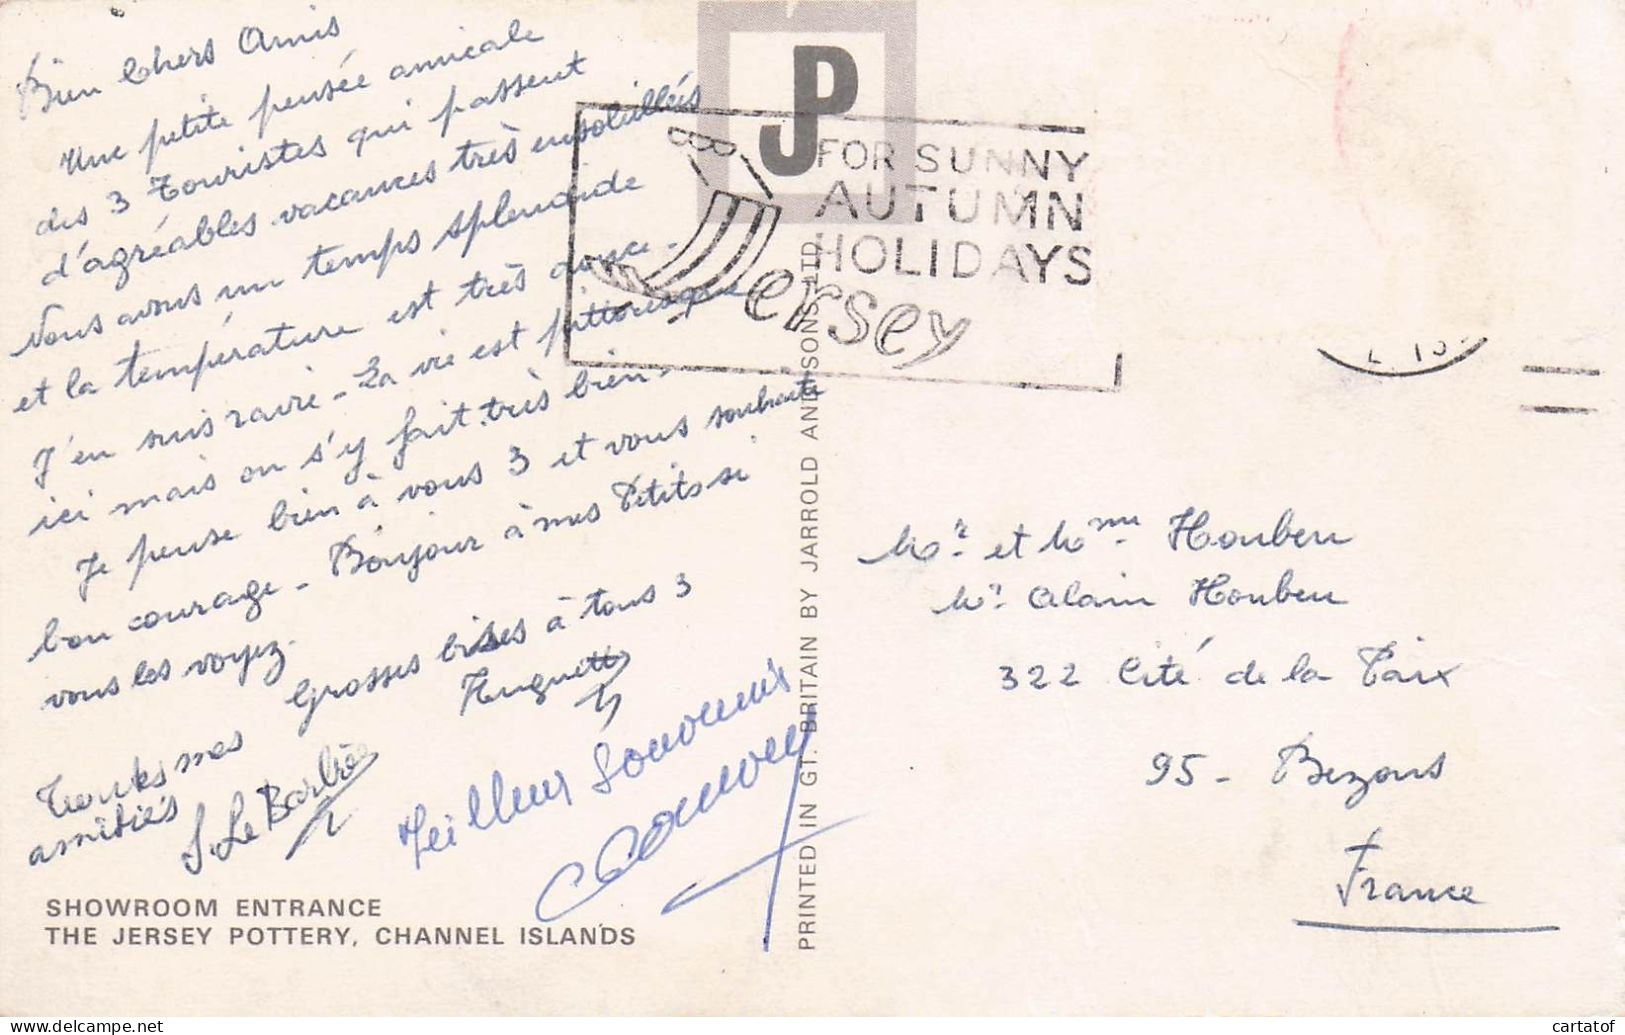 Bien Chers Amis
Une petite pensée amicale
des 3 Touristes qui passent
d'agréables vacances très ensoleillés
Nous avons un temps splendide
et la température est très douce -
J'en suis ravie - La vie est pittoresque
ici mais on s'y fait très bien -
Je pense bien à vous 3 et vous souhaite
bon courage - Bonjour à mes Petits si
vous les voyez.
Grosses bises à tous 3
Huguette
Toutes mes
amitiés
S. Le Barbé
Meilleur Souvenir
SHOWROOM ENTRANCE
THE JERSEY POTTERY, CHANNEL ISLANDS
PRINTED IN GT. BRITAIN BY JARROLD AND SONS LTD
JP
FOR SUNNY
AUTUMN
HOLIDAYS
Jersey
Mr et Mme Houben
Mr Alain Houben
322 Cité de la Paix
95 - Bezons
France
cartatof